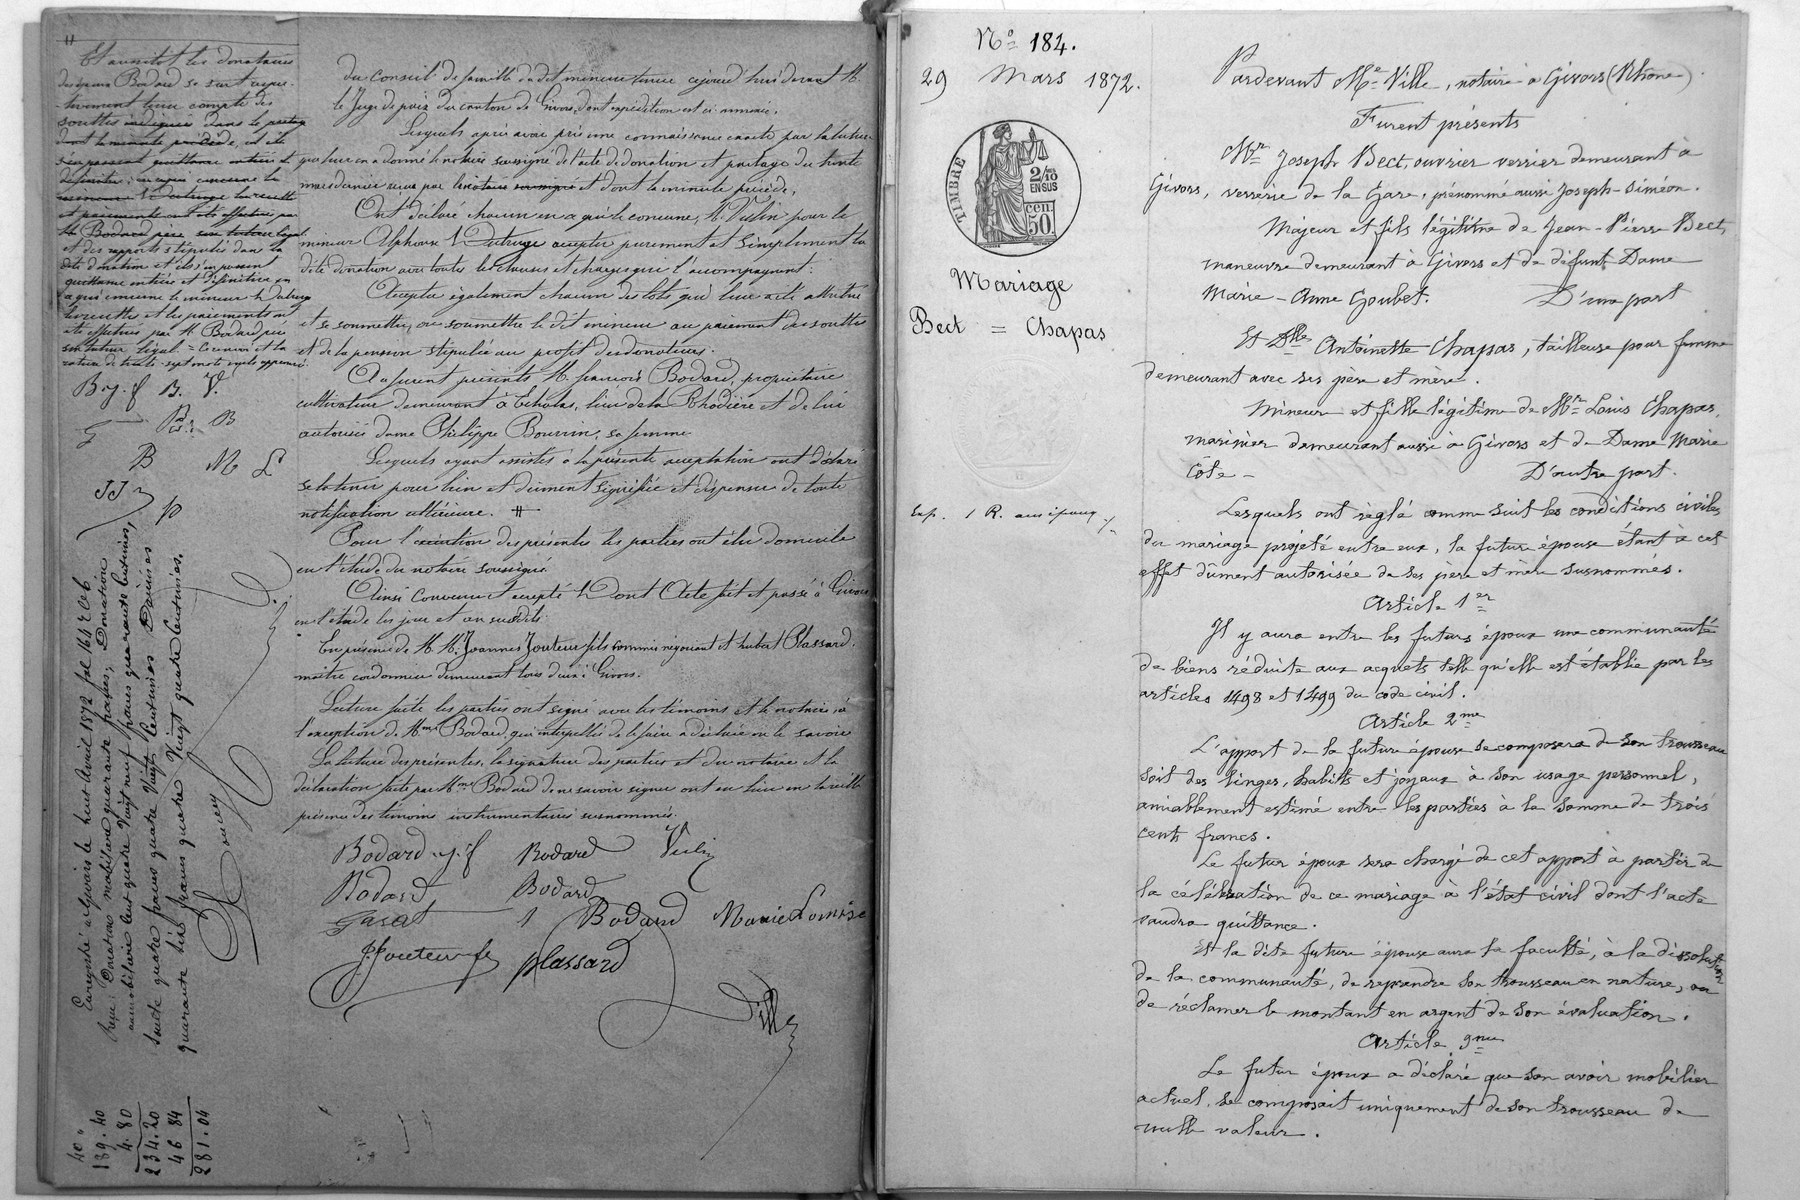 Et aussitôt les donataires
des époux Bodard se sont
compte des
soultes indiquées dans le partage
dont la minute précède,
quittance entière et
définitive,
et paiements ont été effectués par
M. Bodard père son tuteur légal
et des rapports stipulés dans la
dite donation et ils s'en passent
quittance entière et définitive en
ce qui concerne le mineur
les soultes et les paiements ont
été effectués par M. Bodard père
son tuteur légal =
rature de trente-sept mots nuls approuvé
B. y. f B. V.
B
B M L
JJ
P
Enregistré à Givors le huit Avril 1872 fol 161 Rc 6
Reçu: Donation mobilière quarante francs, Donation
immobilière cent quatre vingt neuf francs quarante centimes,
Soulte quatre francs quatre vingt centimes Décimes
quarante six francs quatre vingt quatre centimes.
40 "
189.40
4.80
234.20
46 84
281.04
du Conseil de famille du dit mineur tenue cejourd'hui devant M.
le Juge de paix du canton de Givors, dont expédition est ci-annexée.
Lesquels après avoir pris une connaissance exacte par la lecture
que leur en a donné le notaire soussigné de l'acte de donation et partage du trente
mars dernier reçu par le notaire soussigné et dont la minute précède,
Ont déclaré chacun en ce qui le concerne, M. Vulin pour le
mineur Alphonse accepter purement et simplement la
dite donation avec toutes les clauses et charges qui l'accompagnent:
Accepter également chacun des lots qui leur a été attribué
et se soumettre, ou soumettre le dit mineur au paiement des soultes
et de la pension stipulée au profit des donateurs.
A ce furent présents M. François Bodard, propriétaire
cultivateur demeurant à Echalas, lieu de la Rhodière et de lui
autorisée dame Philippe Bouvrin, sa femme
Lesquels ayant assistés à la présente acceptation ont déclaré
se la tenir pour bien et dûment signifiée et dispenser de toute
notification ultérieure. #
Pour l'exécution des présentes les parties ont élu domicile
en l'étude du notaire soussigné
Ainsi Convenu et accepté Dont Acte fait et passé à Givors
en l'étude les jour et an susdits
En présence de M.M. Joannes Jouteur fils commis négociant et hubert Plassard,
maître cordonnier demeurant tous deux à Givors.
Lecture faite les parties ont signé avec les témoins et le notaire, à
l'exception de Mme Bodard, qui interpellée de le faire a déclaré ne le savoir
La lecture des présentes, la signature des parties et du notaire et la
déclaration faite par Mme Bodard de ne savoir signer ont eu lieu en la réelle
présence des témoins instrumentaires susnommés.
Bodard y. f Bodard Vulin
Bodard Bodard
Gasat 1 Bodard Marie Louise
J. Jouteur fs plassard
Ville
No 184.
29 Mars 1872.
TIMBRE
2/10
EN SUS
cen.
50.
Mariage
Bect = Chapas
Exp. 1 R.
Pardevant Me Ville, notaire à Givors (Rhône)
Furent présents
Mr Joseph Bect, ouvrier verrier demeurant à
Givors, verrerie de la Gare, prénommé aussi Joseph-Siméon.
Majeur et fils légitime de Jean-Pierre Bect,
manœuvre demeurant à Givors et de défunt Dame
Marie-Anne Goubet. D'une part
Et Dlle Antoinette Chapas, tailleuse pour femme
demeurant avec ses père et mère.
Mineur et fille légitime de Mr Louis Chapas,
marinier demeurant aussi à Givors et de Dame Marie
Côte - D'autre part.
Lesquels ont réglé comme suit les conditions civiles
du mariage projeté entre eux, la future épouse étant à cet
effet dûment autorisée de ses père et mère susnommés.
Article 1er
Il y aura entre les futurs époux une communauté
de biens réduite aux acquets telle qu'elle est établie par les
articles 1498 et 1499 du code civil.
Article 2me
L'apport de la future épouse se composera de son trousseau
soit des linges, habits et joyaux à son usage personnel,
amiablement estimé entre les parties à la somme de trois
cents francs.
Le futur époux sera chargé de cet apport à partir de
la célébration de ce mariage à l'état civil dont l'acte
vaudra quittance.
Et la dite future épouse aura la faculté, à la dissolution
de la communauté, de reprendre son trousseau en nature, ou
de réclamer le montant en argent de son évaluation.
Article 3me
Le futur époux a déclaré que son avoir mobilier
actuel, se composait uniquement de son trousseau de
nulle valeur.